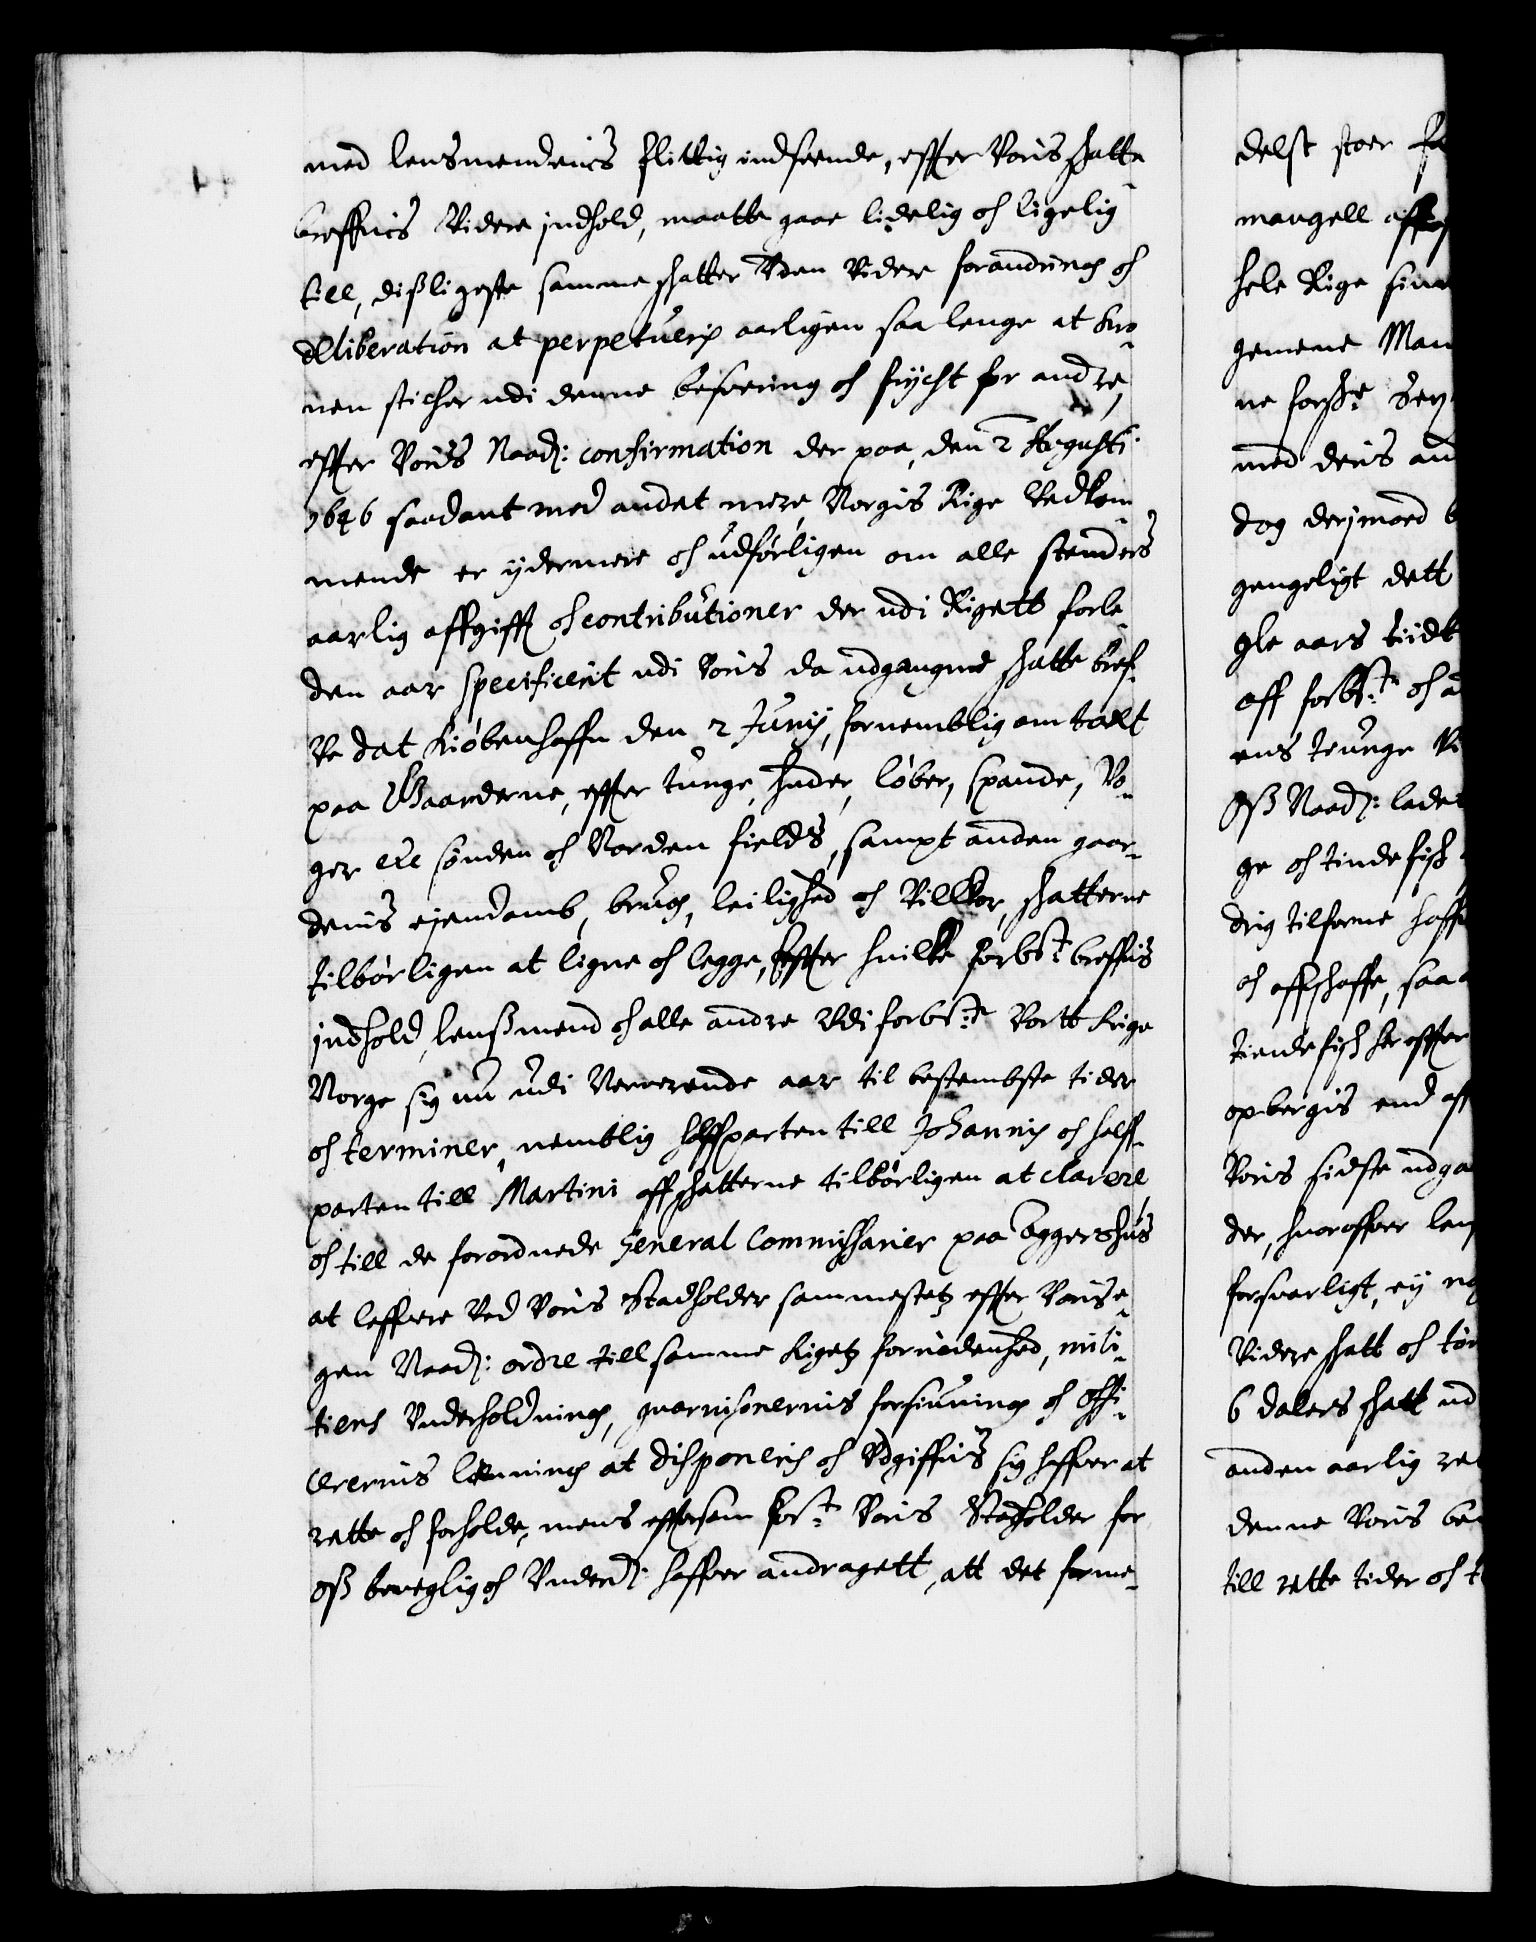 med lensmendenis flittig indseende, effter Voris skatte¬
breffuis Videre jndhold, maatte gaae lidelig och ligelig
till, dißligeste samme skatter Uden Videre forandring och
deliberation at perpetueris aarligen saa lenge at Kro¬
nen sticher udi denne besvering och frÿcht for andre,
effter Voris Naadg: confirmation der paa, den 2 Augusti
1646 saadant med andet mere Norgis Rige Vedkom¬
mende er ÿdermere och udførligen om alle stenders
aarlig affgifft och contributioner der udi Rigett forle¬
den aar specificerit udi Voris da udgangne skatte bref¬
Ve dat Kiøbenhaffn den 2 Junij, fornemblig om tallt
paa Gaarderne, effter tunge, huder, løber, spande, Vo¬
ger etc sønden och Norden fields, sampt anden gaar¬
denis ejendomb, brug, leilighed och Villkor, skatterne
tilbørligen at ligne och legge, Effter huilke forbte breffuis
jndhold, lenßmend och alle andre Udi forbte Vortt Rige
Norge sig nu udi Nerverende aar til bestembste tider
och terminer, nemblig halffparten till Johannis och halff¬
parten till Martini aff skatterne tilbørligen at clarere
och till de forordnede General Commissarier paa Aggershus
at leffuere Ved Voris Stadholder sammestetz effter Voris e¬
gen Naadg: ordre till samme Rigetz fornødenhed, mili¬
tiens Vnderholdning, guarnisonernis forsiuning och offi¬
cerernis lønning at disponeris och Udgiffuis sig haffuer at
rette och forholde, mens efftersom forte Voris Stadholder for
oß beveglig och Underdg: haffuer andragett, att det forme¬
delst stoer
mangell aff
hele Rige sine
gemene Man
ne
med deris an
dog derjmod
gengeligt dett
gle aars tiidt
aff forbte och
ens tounge Vi
Oß Naadg: lade
ge och tinde fisk
drig tilforne haff
och affskaffe, saa
tiende fisk her effter
opbergis end aff
Voris sidste udga
der, huoroffuer len
forsvarligt, eÿ no
Videre skatt och
6 dalers skatt ud
anden aarlig
denne Voris be
till rette tider och t